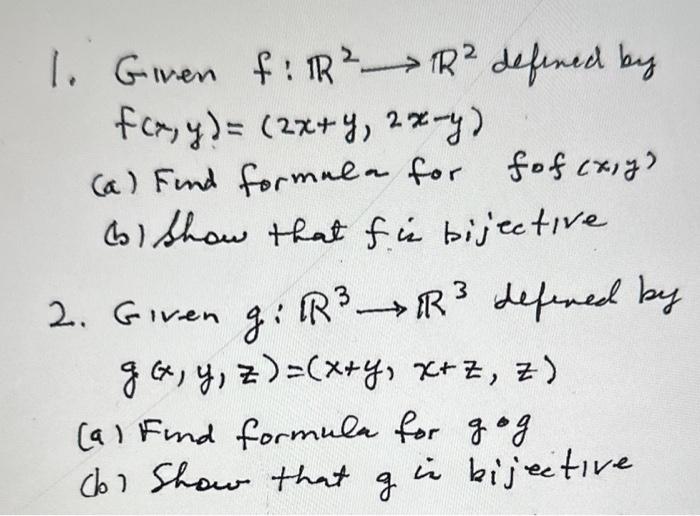 1. Given f: ℝ² → ℝ² defined by
f(x,y) = (2x+y, 2x-y)
(a) Find formula for fof (x,y)
(b) Show that f is bijective
2. Given g: ℝ³ → ℝ³ defined by
g(x, y, z) = (x+y, x+z, z)
(a) Find formula for g∘g
(b) Show that g is bijective